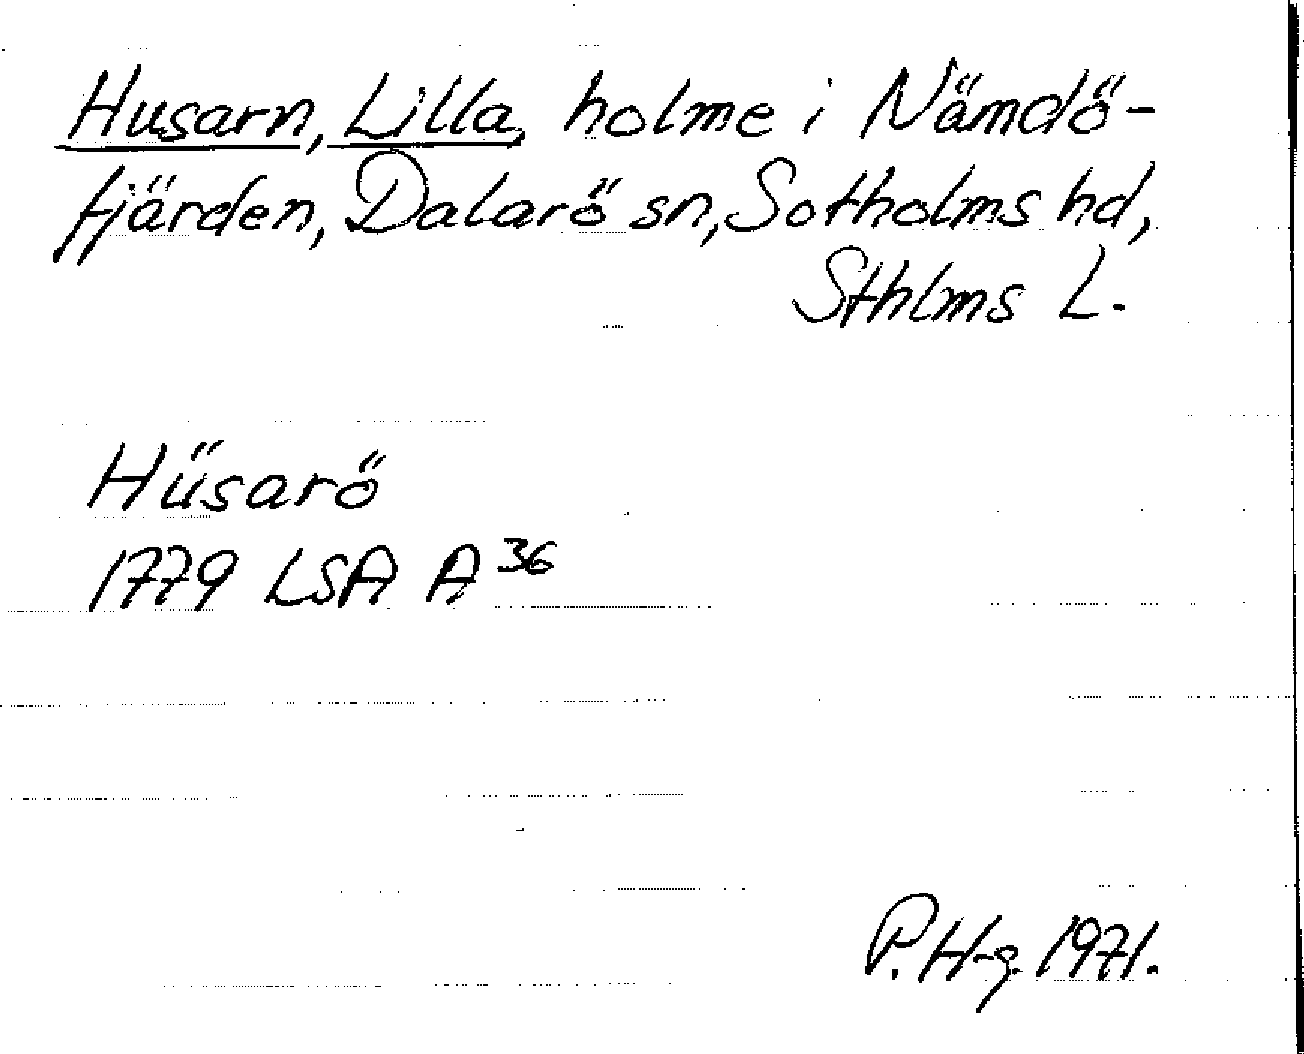 Husarn, Lilla, holme i Nämdö-
fjärden, Dalarö sn, Sotholms hd,
Sthlms L.
Hüsarö
1779 LSA A 36
P. H-g. 1971.